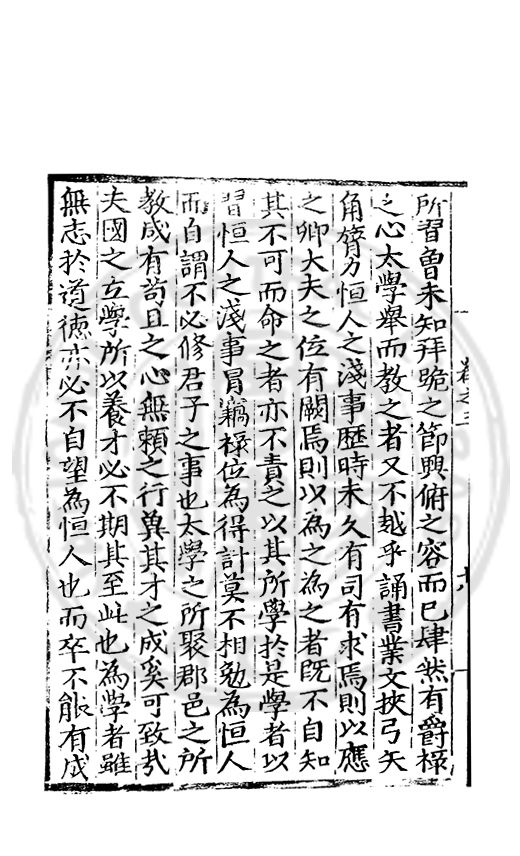 卷之三
十八
所習魯未知拜跪之節興俯之容而已肆然有爵祿
之心太學舉而教之者又不越乎誦書業文挾弓矢
角膂力恒人之淺事歷時未久有司有求焉則以應
之卿大夫之位有闕焉則以為之為之者既不自知
其不可而命之者亦不責之以其所學於是學者以
習恒人之淺事冒竊祿位為得計莫不相勉為恒人
而自謂不必修君子之事也太學之所聚郡邑之所
教咸有苟且之心無賴之行冀其才之成奚可致哉
夫國之立學所以養才必不期其至此也為學者雖
無志於道德亦必不自望為恒人也而卒不能有成